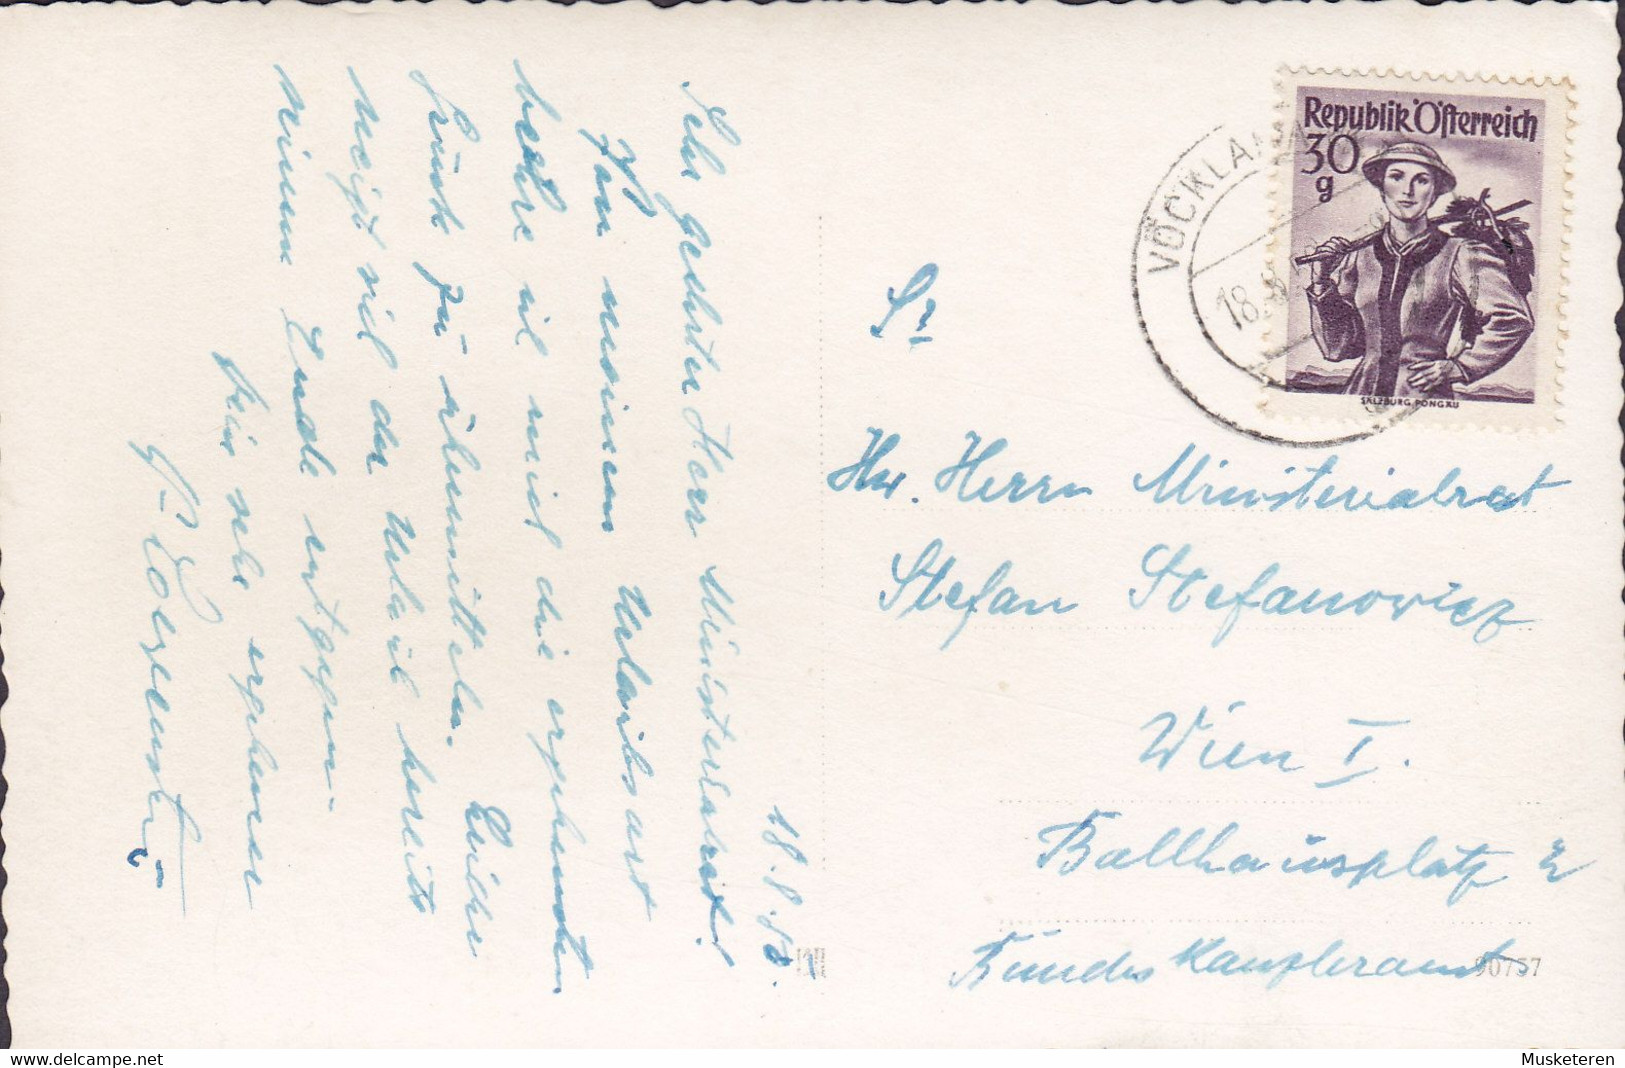 18.8.50.
Sehr geehrter Herr Ministerialrat!
Von meinem Urlaubsort
beehre ich mich die ergebensten
Grüße zu übermitteln. Leider
neigt sich der Urlaub bereits
seinem Ende entgegen.
Ihr sehr ergebener
Republik Österreich
30
g
SALZBURG, PONGAU
VÖCKLAM
18.8.
Sr
Hw. Herrn Ministerialrat
Stefan Stefanowicz
Wien I.
Ballhausplatz 2
Bundeskanzleramt
90757
delcampe.net
Musketeren